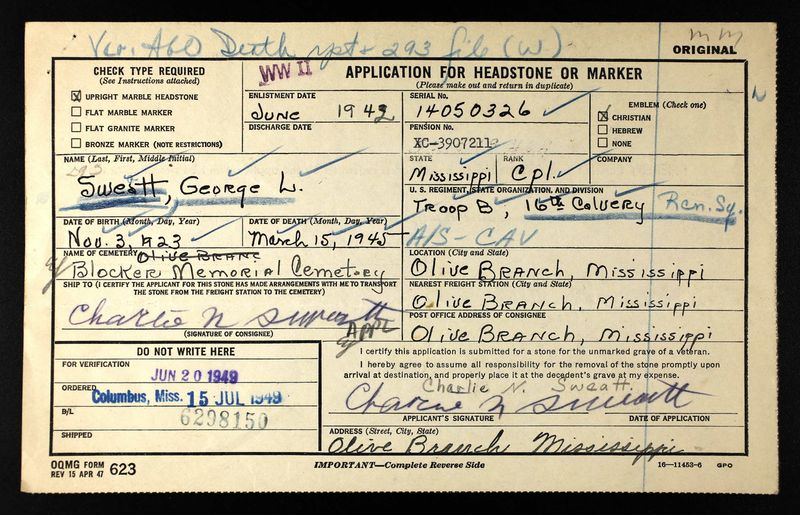 Ver. AGO Death rpt + 293 file (W)
mm
ORIGINAL
CHECK TYPE REQUIRED
(See Instructions attached)
☒ UPRIGHT MARBLE HEADSTONE
☐ FLAT MARBLE MARKER
☐ FLAT GRANITE MARKER
☐ BRONZE MARKER (NOTE RESTRICTIONS)
WW II
APPLICATION FOR HEADSTONE OR MARKER
(Please make out and return in duplicate)
ENLISTMENT DATE
June 1942
DISCHARGE DATE
SERIAL No.
14050326
PENSION No.
XC-3907211
EMBLEM (Check one)
☒ CHRISTIAN
☐ HEBREW
☐ NONE
NAME (Last, First, Middle Initial)
293
Sweatt, George L.
STATE
Mississippi
RANK
Cpl.
COMPANY
U. S. REGIMENT, STATE ORGANIZATION, AND DIVISION
Troop B, 16th Calvery Rcn. Sq.
A/S - CAV
DATE OF BIRTH (Month, Day, Year)
Nov. 3, 1923
DATE OF DEATH (Month, Day, Year)
March 15, 1945
NAME OF CEMETERY
Olive Branc
Blocker Memorial Cemetery
LOCATION (City and State)
Olive Branch, Mississippi
SHIP TO (I CERTIFY THE APPLICANT FOR THIS STONE HAS MADE ARRANGEMENTS WITH ME TO TRANSPORT
THE STONE FROM THE FREIGHT STATION TO THE CEMETERY)
Charlie N Sweatt
(SIGNATURE OF CONSIGNEE)
Appl
NEAREST FREIGHT STATION (City and State)
Olive Branch, Mississippi
POST OFFICE ADDRESS OF CONSIGNEE
Olive Branch, Mississippi
DO NOT WRITE HERE
FOR VERIFICATION
JUN 20 1949
ORDERED
Columbus, Miss. 15 JUL 1949
B/L
6298150
SHIPPED
I certify this application is submitted for a stone for the unmarked grave of a veteran.
I hereby agree to assume all responsibility for the removal of the stone promptly upon
arrival at destination, and properly place it at the decedent's grave at my expense.
Charlie N. Sweatt
Charlie N Sweatt
APPLICANT'S SIGNATURE
DATE OF APPLICATION
ADDRESS (Street, City, State)
Olive Branch Mississippi
OQMG FORM
REV 15 APR 47 623
IMPORTANT—Complete Reverse Side
16—11453-6 GPO